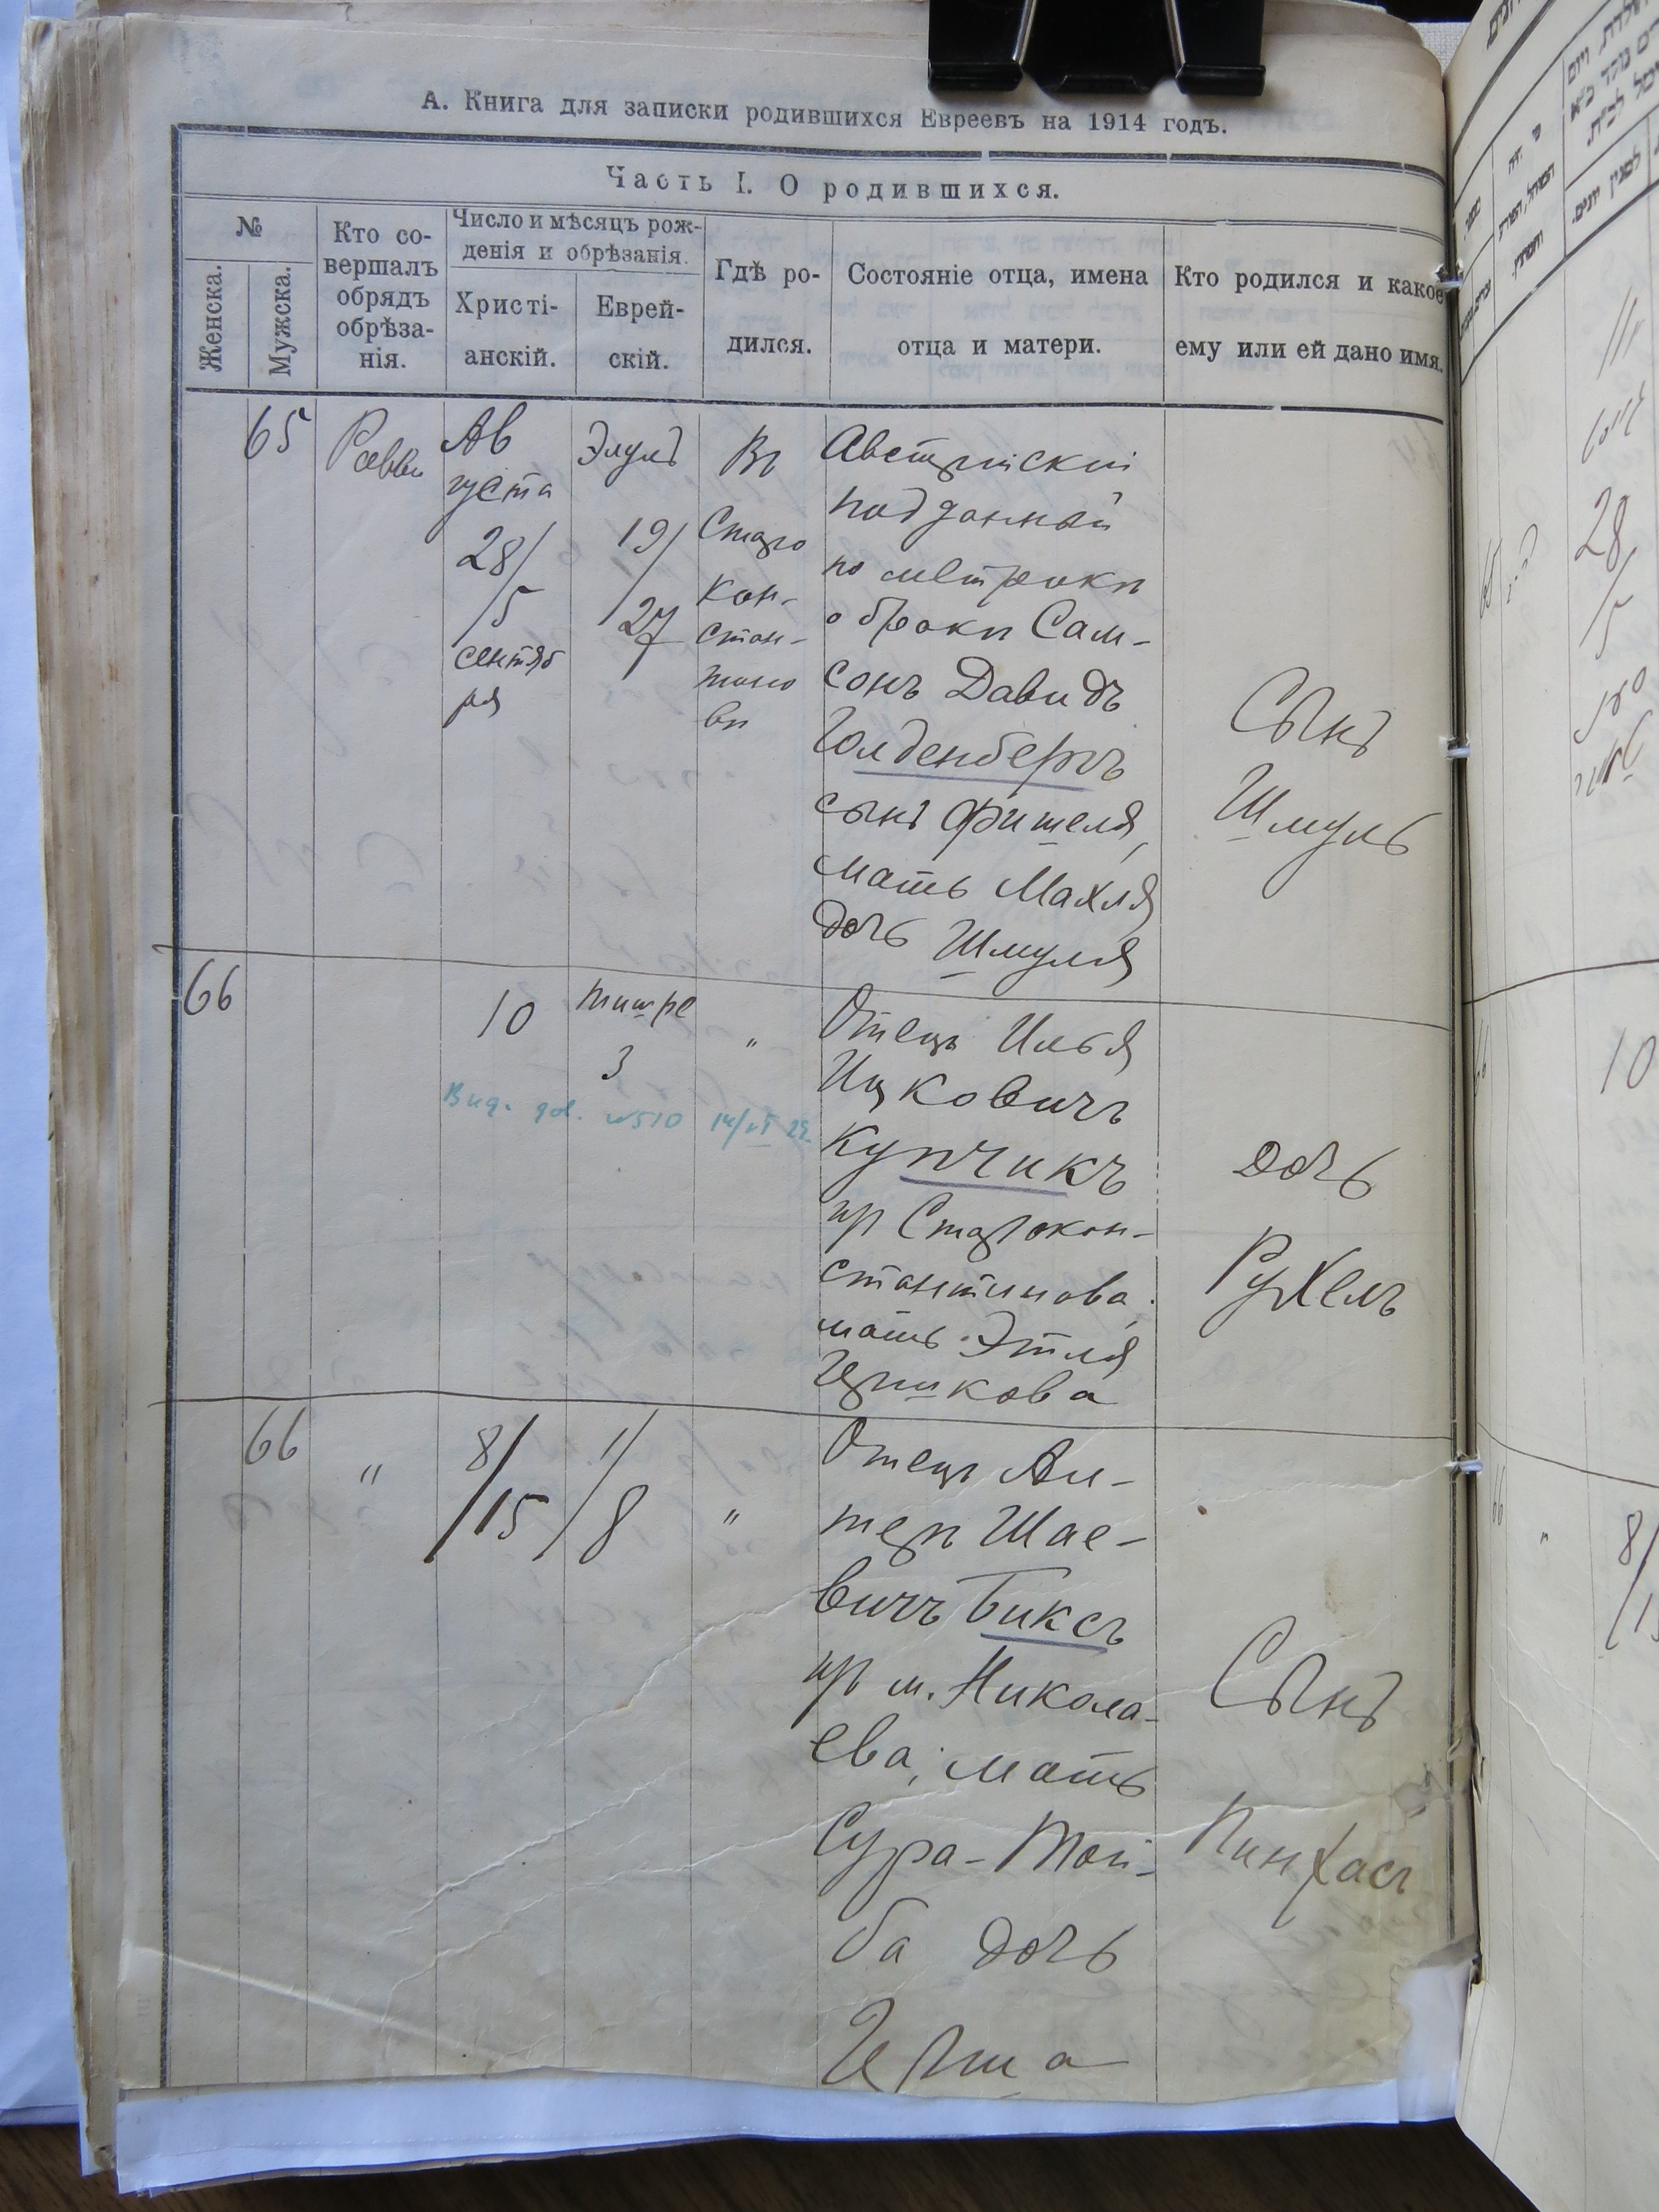 А. Книга для записки родившихся Евреевъ на 1914 годъ.
Часть I. О родившихся.
№
Женска.
Мужска.
Кто со-
вершалъ
обрядъ
обрѣза-
нія.
Число и мѣсяцъ рож-
денія и обрѣзанія.
Христі-
анскій.
Еврей-
скій.
Гдѣ ро-
дился.
Состояніе отца, имена
отца и матери.
Кто родился и какое
ему или ей дано имя.
65
Ав
густа
28/
/5
сентяб
ря
Элулъ
19/
/27
Въ
Старо
кон-
стан-
тино
вѣ
Австрійскій
подданный
по метрикѣ
о бракѣ Сам-
сонъ Давидъ
Голденбергъ
сынъ Фишеля,
мать Махля
дочь Шмуля
Сынъ
Шмуль
66
10
Тишре
3
"
Отецъ Илья
Ицковичъ
Купчикъ
изъ Старокон-
стантинова,
мать Этля
Дочь
Рухель
66
"
8/
/15
1/
/8
"
Отецъ Ал-
теръ Шае-
вичъ Биксъ
изъ м. Никола-
ева, мать
Сура-Той-
ба дочь
Сынъ
Пинхасъ
28/
/5
10
8/